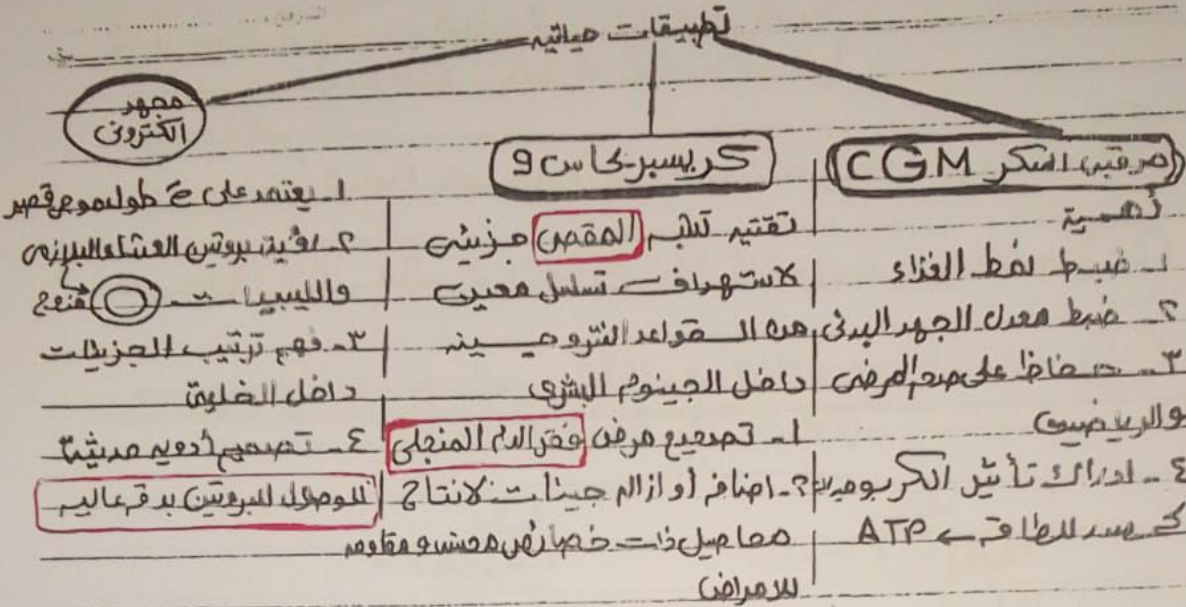 تطبيقات حياتيه
مرقبى السكر CGM
أهمية
١- ضبط نمط الغذاء
٢- ضبط معدل الجهد البدنى
٣- حفاظا على صحه المرضى
والرياضيين
٤- ادراك تأثير الكربوهيدرات
كمصدر للطاقه ← ATP
كريسبر-كاس 9
تقنيه تشبه المقص جزيئى
لاستهداف تسلسل معين
من القواعد النتروجينيه
داخل الجينوم البشرى
١- تصحيح مرض فقر الدم المنجلى
٢- اضافه أو ازاله جينات لانتاج
محاصيل ذات خصائص محسنه و مقاومه
للامراض
مجهر
الكترونى
١- يعتمد على طول موجى قصير
٢- رؤية بروتين الغشاء البلازمى
والليبيدات
٣- فهم ترتيب الجزيئات
داخل الخلية
٤- تصميم أدويه حديثة
للوصول للبروتين بدقه عاليه